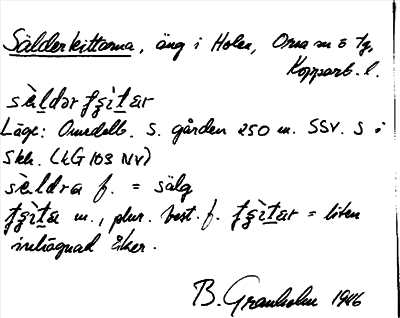 Sälderkittarna, äng i Holen, Orsa sn o tg,
Kopparb. l.
sὲldər
Läge: Omedelb. S. gården 250 m. SSV. S i
skh. (LG 103 NV)
sὲldra f. = sälg
m., plur. best. f. = liten
inhägnad åker.
B. Granholm 1946